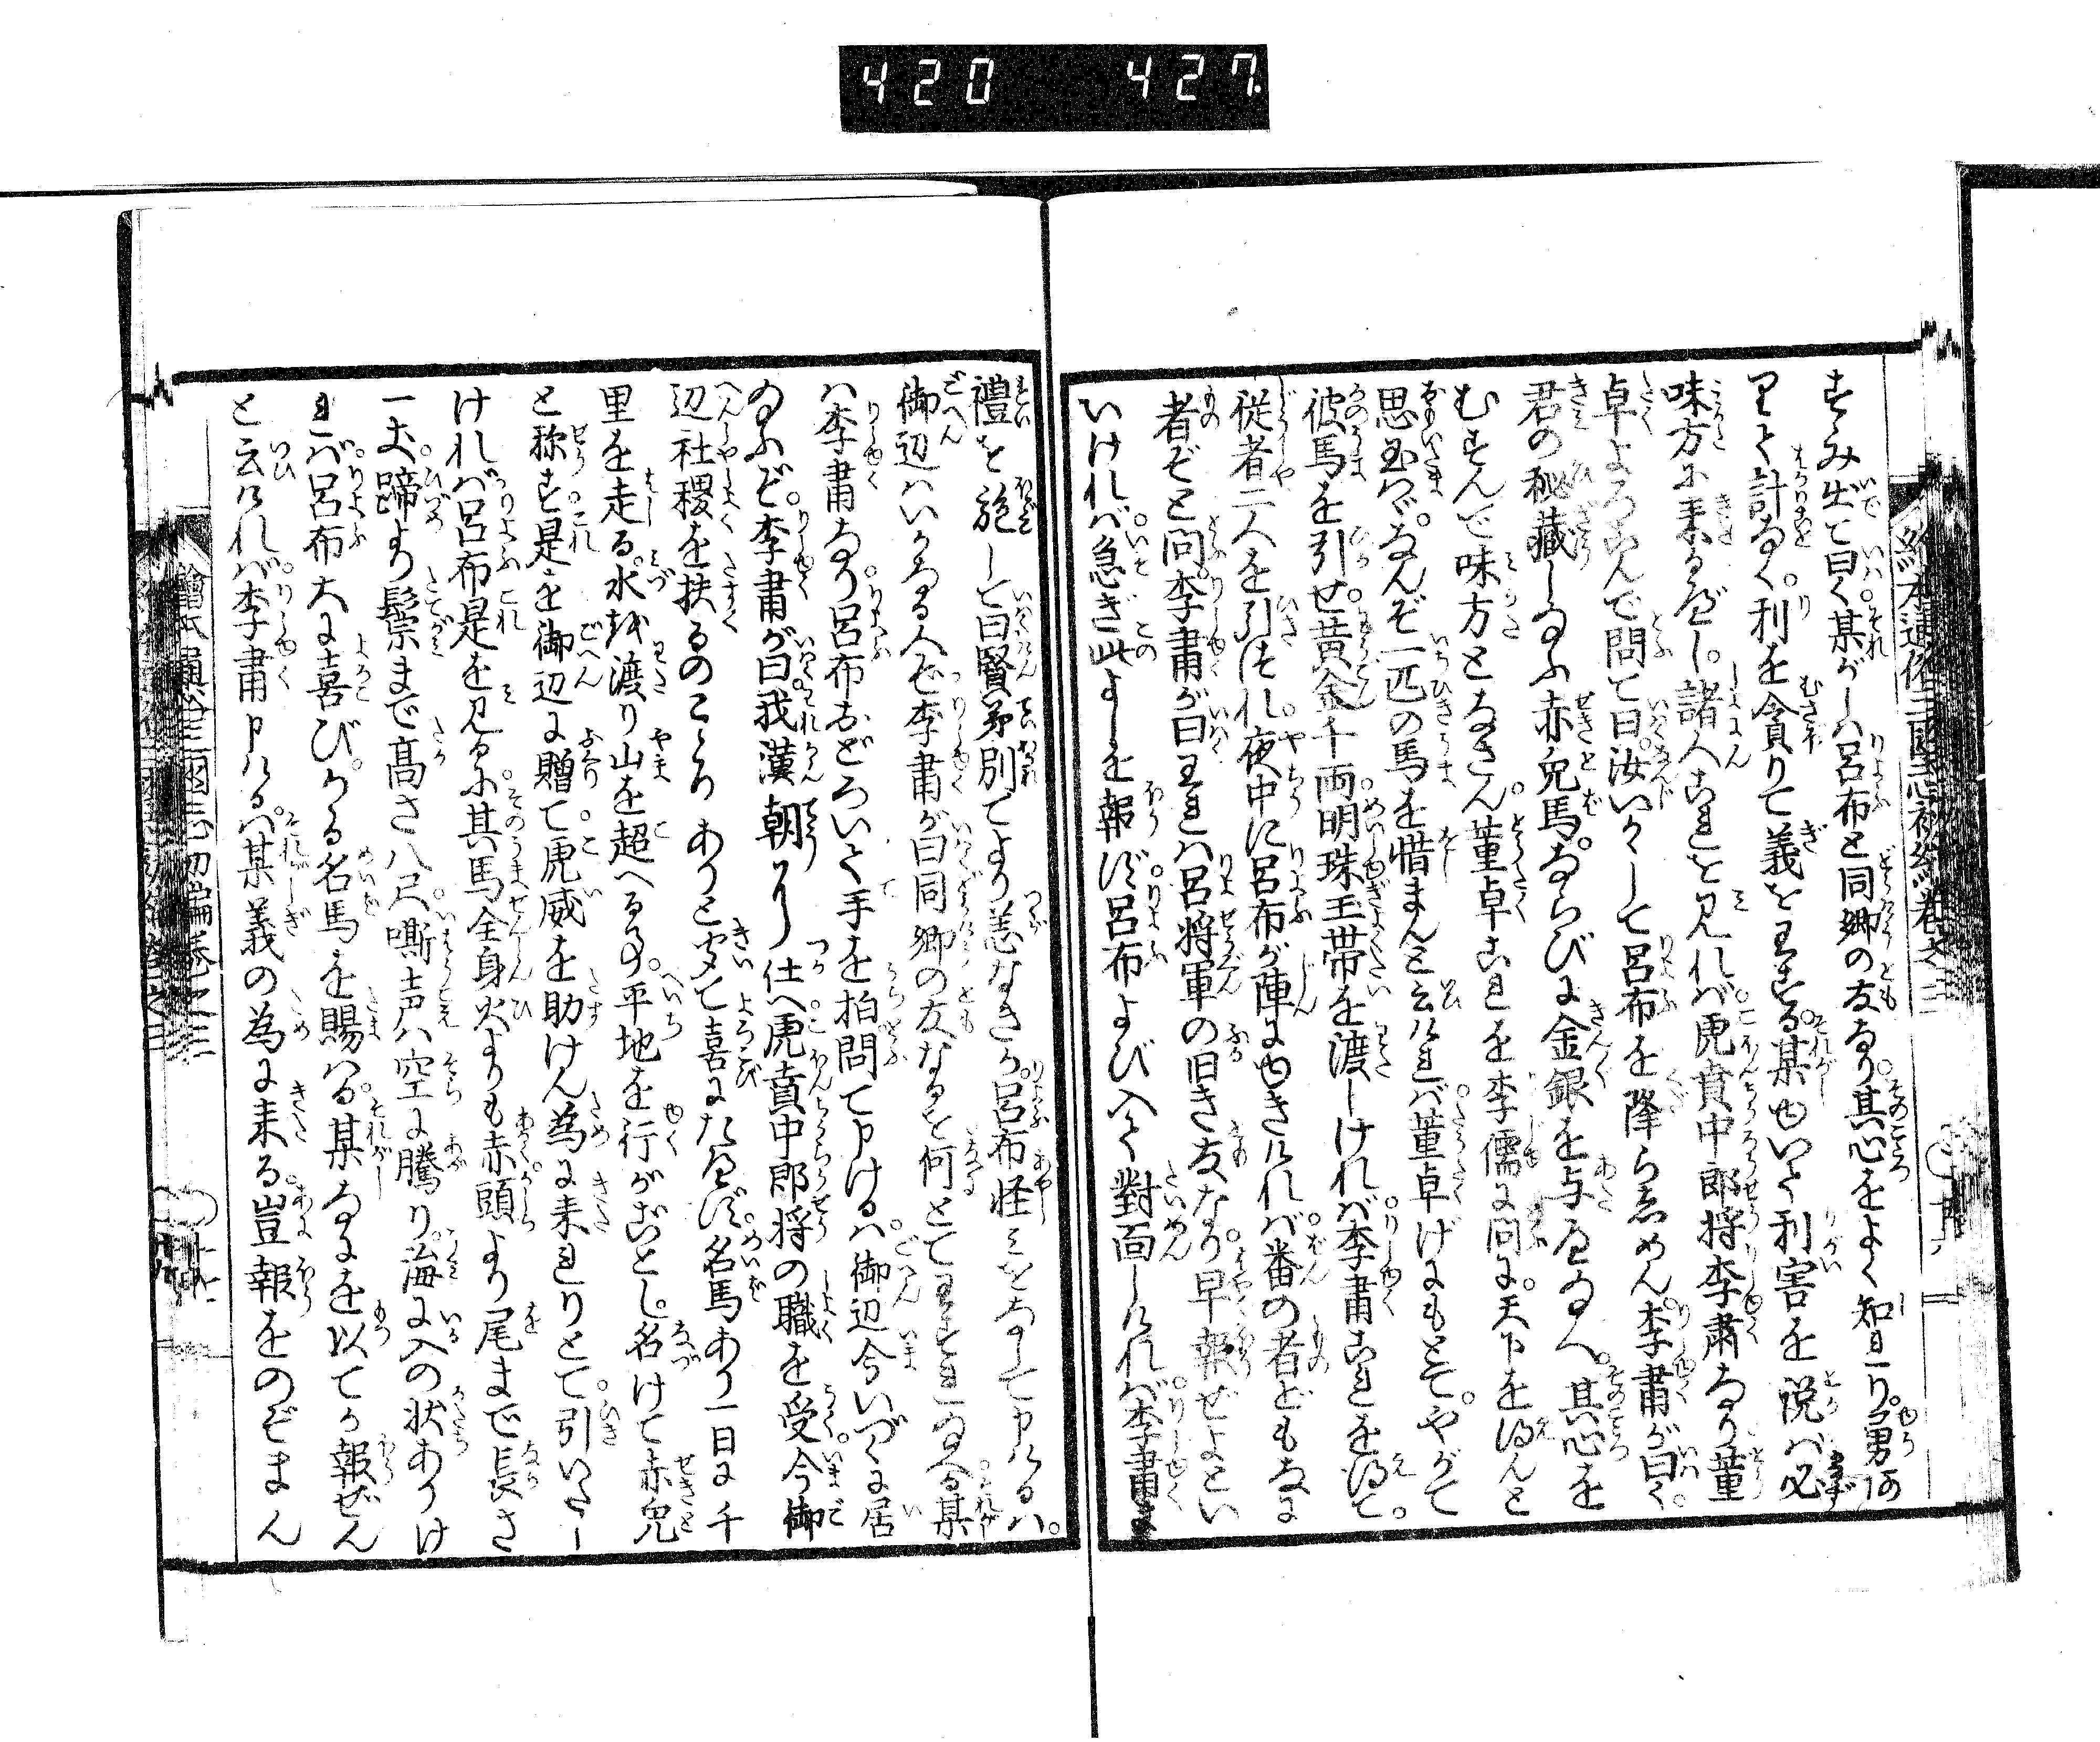 420 427
すゝみ出て曰く某がし八呂布と同郷の友なり其心をよく知り一り勇有
りて計なく利を貪りて義をわする某ゆいて利害を説バ必
味方に来るべし諸人これを見れバ虎賁中郎将李肅なり董
卓よろこんで問て曰汝いかゞして呂布を降らしめん李肅が曰く
君の秘藏し給ふ赤兎馬ならびに金銀を与へ給へ其心を
むすんで味方となさん董卓これを李儒に問に天下を得んと
思玉ハゞなんぞ一匹の馬を惜まんと云けれバ董卓げにもとてやがて
彼馬を引せ黄金千両明珠玉帶を渡しけれバ李肅これを得て
従者二人を引つれ夜中に呂布が陣にゆきけれバ番の者どもなに
者ぞと問李肅が曰われハ呂将軍の旧き友なり早報ぜよとい
いけれバ急ぎ此よしを報ず呂布よび入て對面しけれバ李肅ま
禮を施して曰賢弟別てより恙なきか呂布怪ミをなして申けるハ
御辺ハいかなる人ぞ李肅が曰同郷の友なるを何とてわすれ給へる某
ハ李肅なり呂布おどろいて手を拍問て申けるハ御辺今いづくに居
給ふぞ李肅が曰我漢朝に仕へ虎賁中郎将の職を受今御
辺社稷を扶るのこゝろありと聞て喜にたえず名馬あり一日に千
里を走る水を渡り山を超へる事平地を行がごとし名けて赤兎
と称す是を御辺に贈て虎威を助けん為に来れりとて引いだし
けれバ呂布是を見るに其馬全身火よりも赤頭より尾まで長さ
一丈蹄より鬃まで髙さ八尺嘶声ハ空に騰り海に入の状ありけ
れバ呂布大に喜びかゝる名馬を賜ハる某なにを以てか報ぜん
と云けれバ李肅申けるハ某義の為に来る豈報をのぞまん